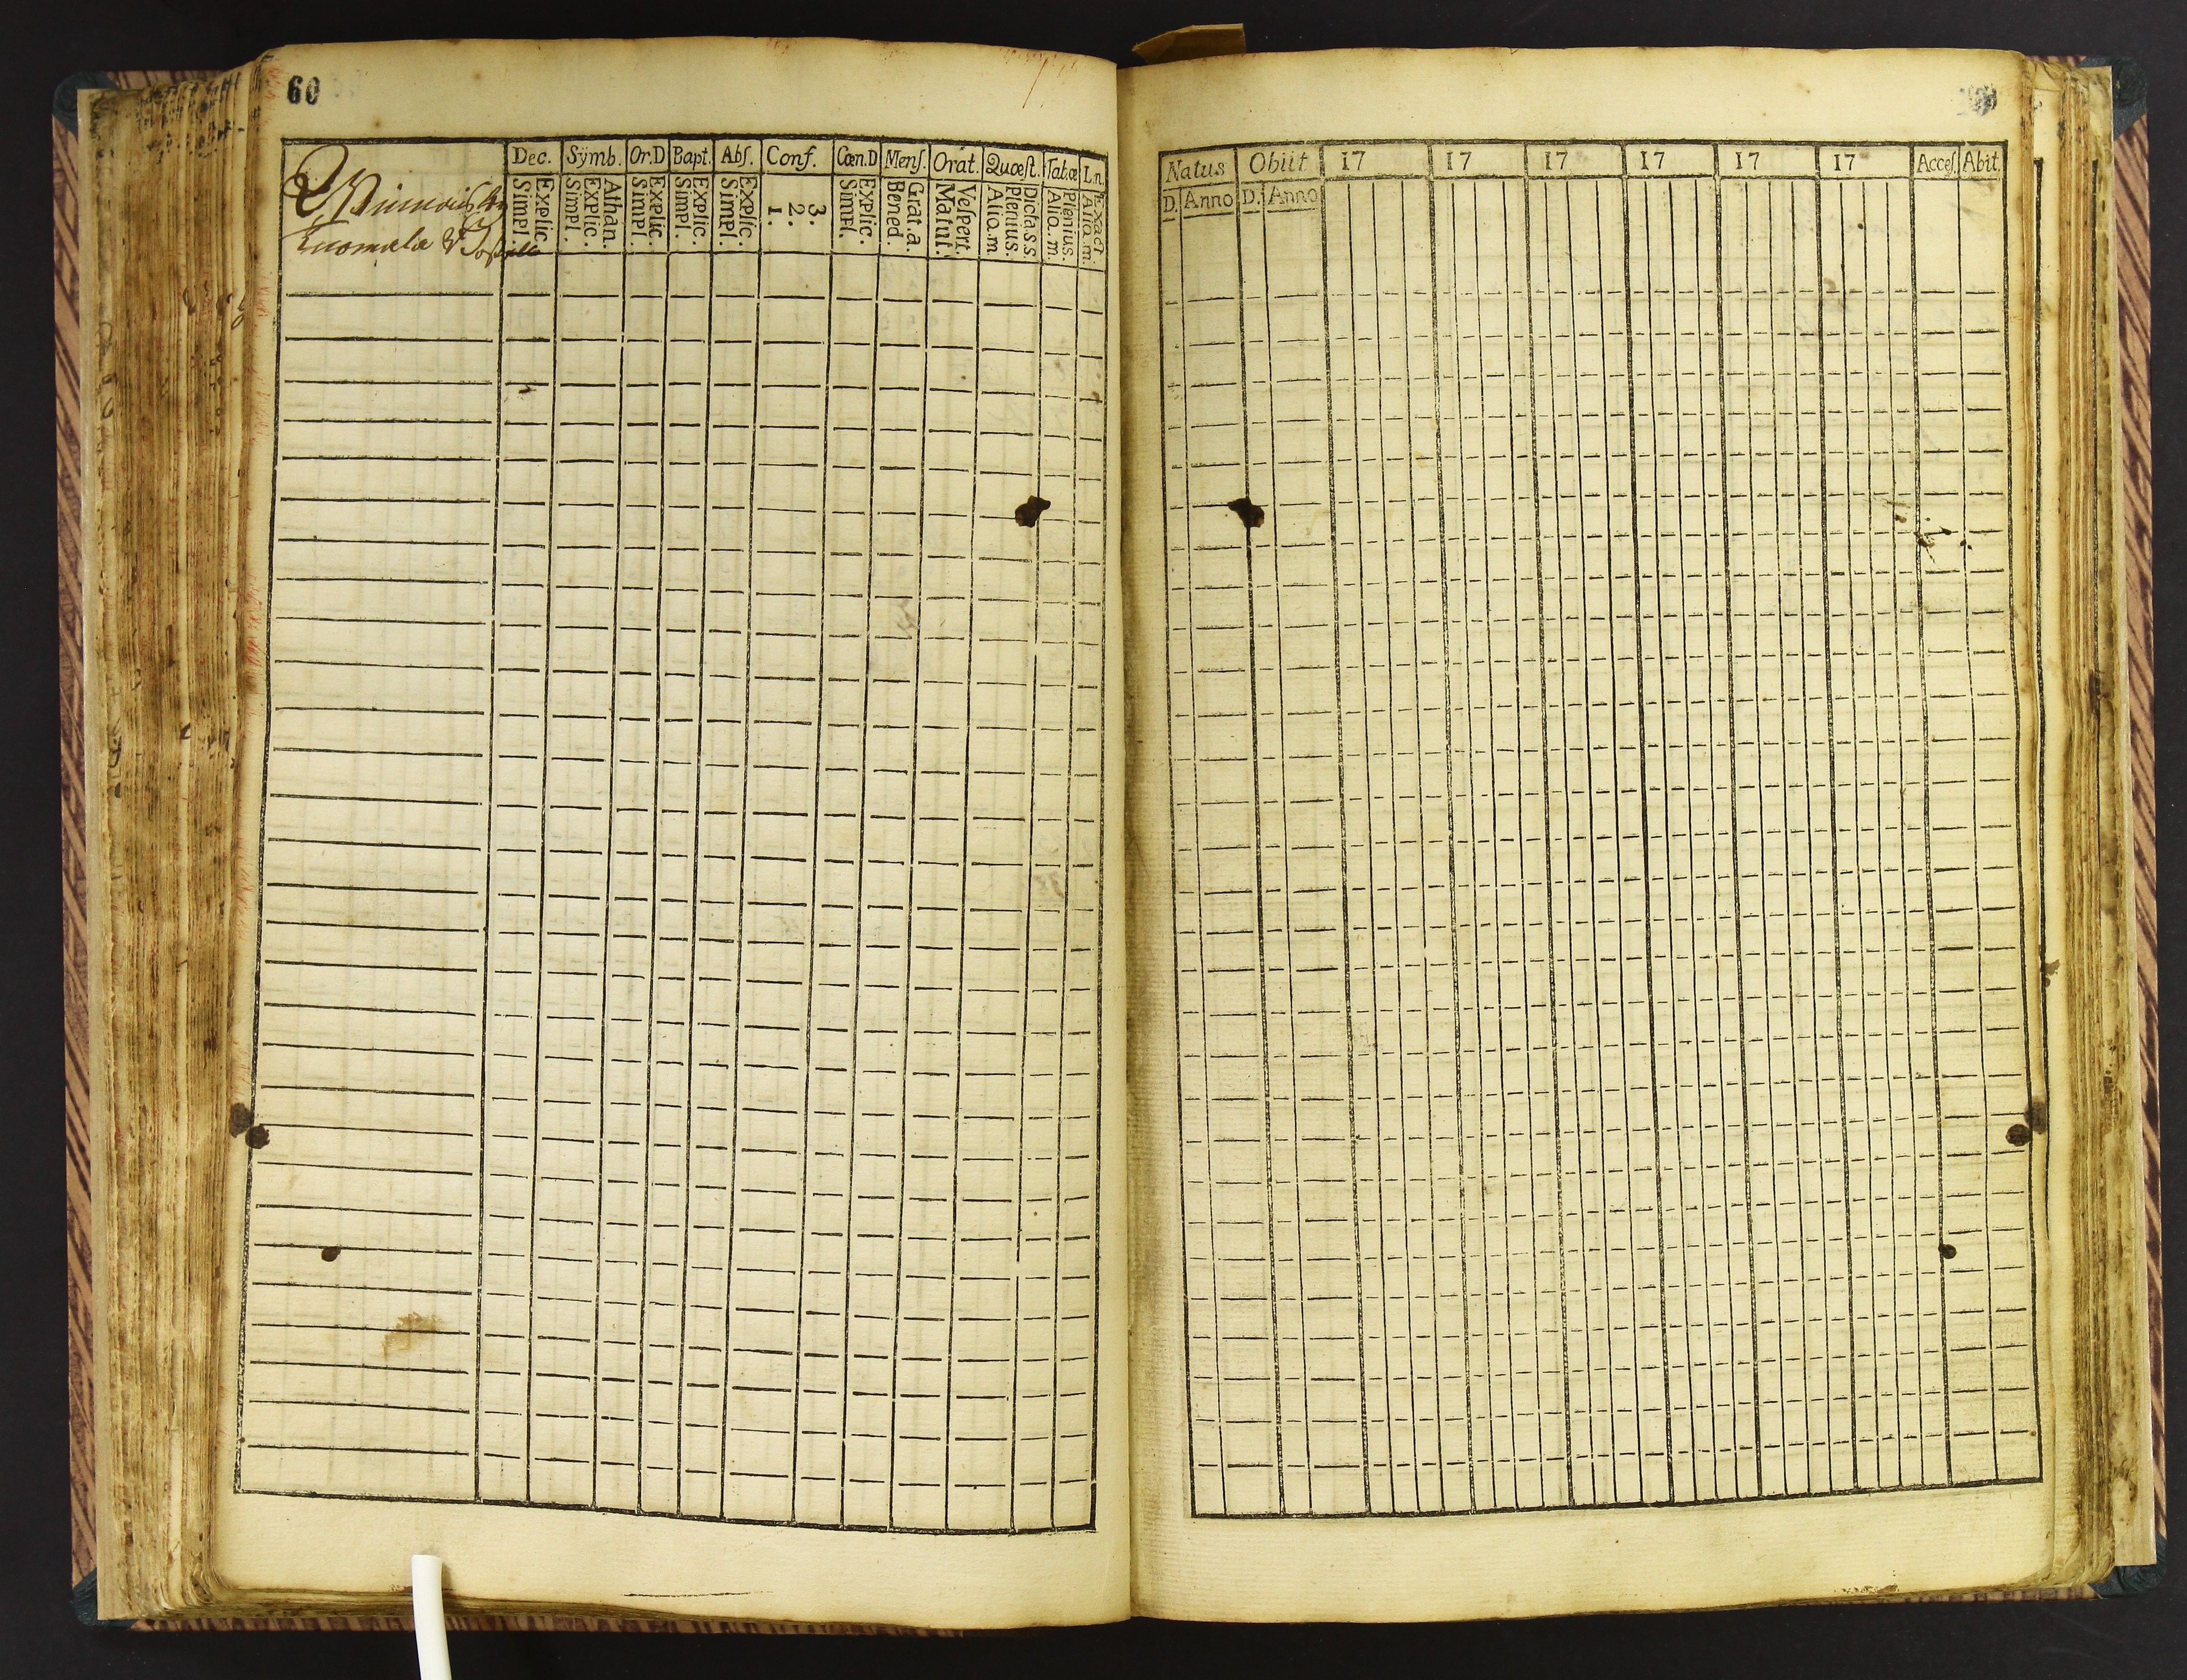 60
Dec. Sÿmb. Or.D Bapt. Abſ. Conf. Cœn.D Menſ. Orat. Quœſt. Tat.œ L.n.
Simpl. Explic. Simpl. Explic. Athan. Simpl. Explic. Simpl. Explic. Simpl. Explic. 1. 2. 3. Simpl. Explic. Bened. Grat.a. Matut. Veſpert. Alio.m Plenius. Dicta.s.s Alio.m. Plenius. Alio.m. Exact.
Natus Obiit 17 17 17 17 17 17 Acceſ. Abit.
D. Anno D. Anno